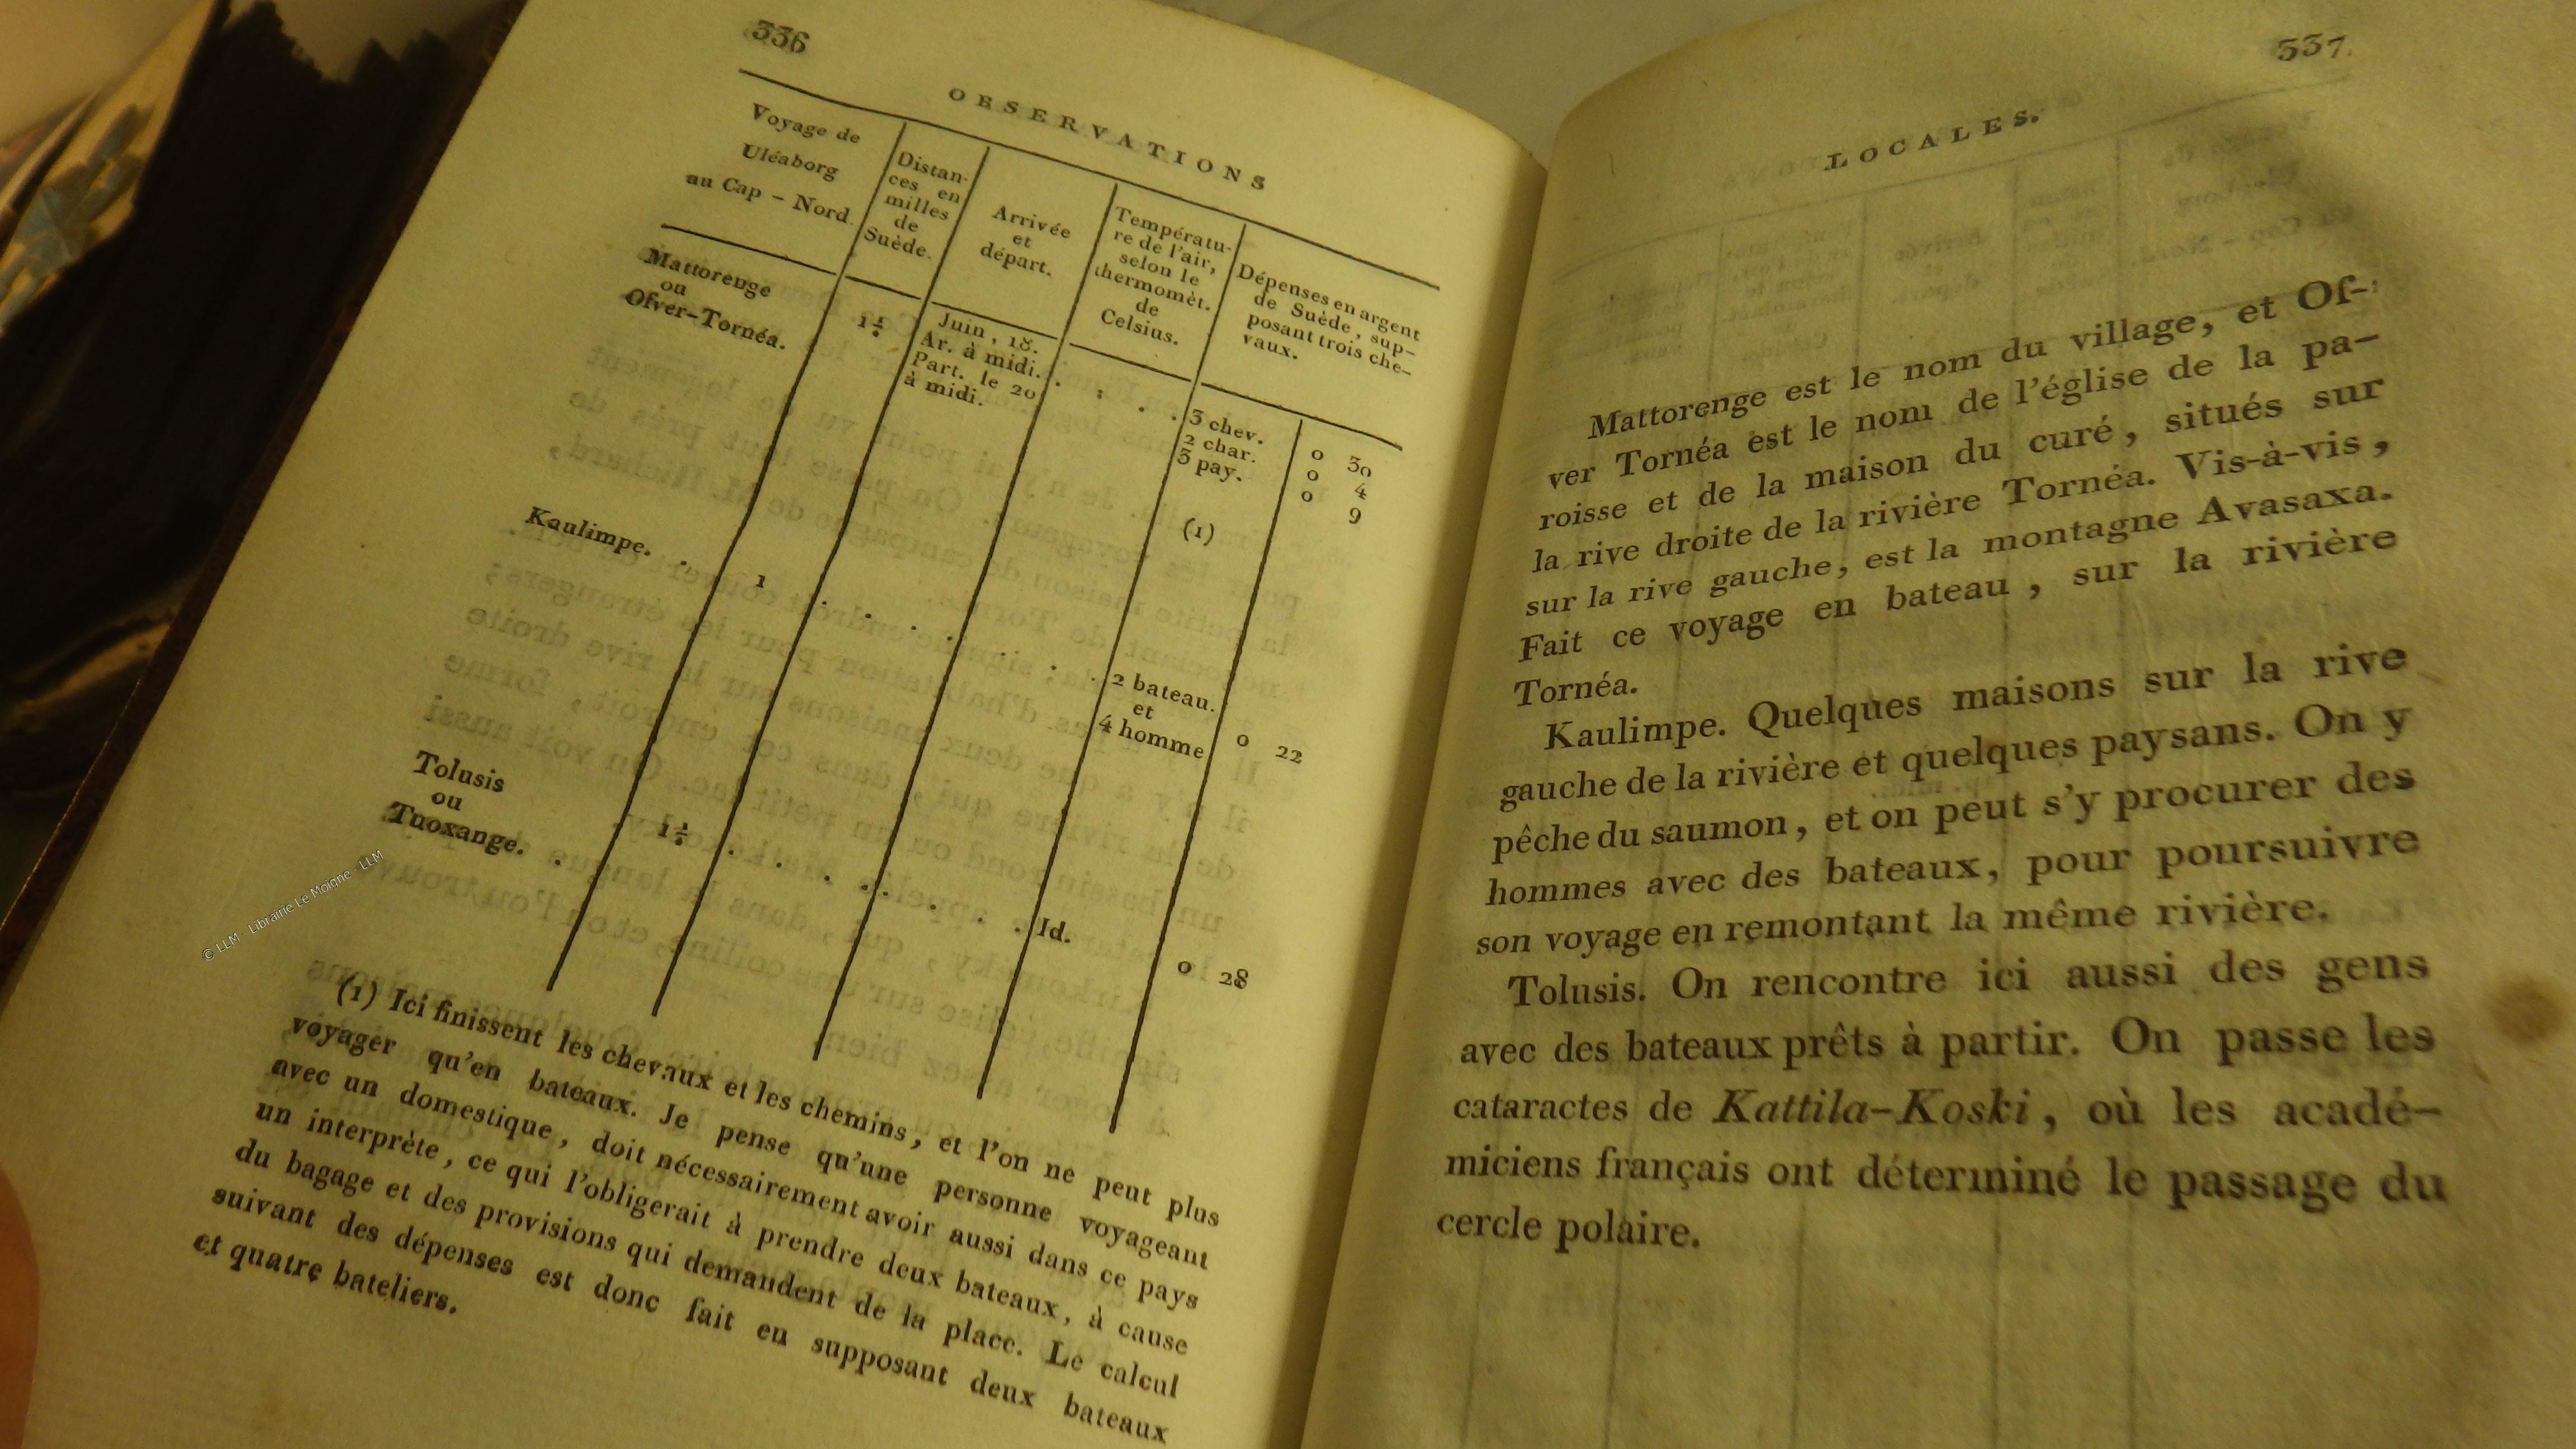 336
OBSERVATIONS
Voyage de
Uléaborg
au Cap - Nord.
Distan-
ces en
milles
de
Suède.
Arrivée
et
départ.
Températu-
re de l'air,
selon le
thermomèt.
de
Celsius.
Dépenses en argent
de Suède, sup-
posant trois che-
vaux.
Mattorenge
ou
Ofver-Tornéa.
Juin, 18.
Ar. à midi.
Part. le 20
à midi.
3 chev. 0 30
2 char. 0 4
3 pay. 0 9
(1)
Kaulimpe. . 1
2 bateau.
et
4 homme 0 22
Tolusis
ou
Tuoxange. .
Id. 0 28
(1) Ici finissent les chevaux et les chemins, et l'on ne peut plus
voyager qu'en bateaux. Je pense qu'une personne voyageant
avec un domestique, doit nécessairement avoir aussi dans ce pays
un interprète, ce qui l'obligerait à prendre deux bateaux, à cause
du bagage et des provisions qui demandent de la place. Le calcul
suivant des dépenses est donc fait en supposant deux bateaux
et quatre bateliers.
© LLM - Librairie Le Moigne - LLM
337
LOCALES.
Mattorenge est le nom du village, et Of-
ver Tornéa est le nom de l'église de la pa-
roisse et de la maison du curé, situés sur
la rive droite de la rivière Tornéa. Vis-à-vis,
sur la rive gauche, est la montagne Avasaxa.
Fait ce voyage en bateau, sur la rivière
Tornéa.
Kaulimpe. Quelques maisons sur la rive
gauche de la rivière et quelques paysans. On y
pêche du saumon, et on peut s'y procurer des
hommes avec des bateaux, pour poursuivre
son voyage en remontant la même rivière.
Tolusis. On rencontre ici aussi des gens
avec des bateaux prêts à partir. On passe les
cataractes de Kattila-Koski, où les acadé-
miciens français ont déterminé le passage du
cercle polaire.